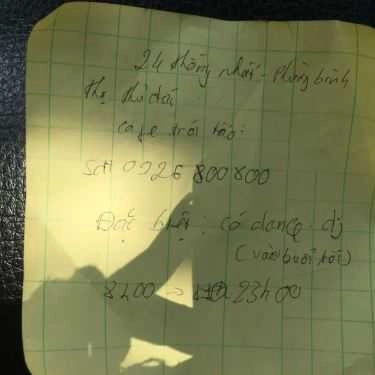 24 thống nhất - Phường bình
thọ thủ đức
cafe trái táo:
Sđt 0926 800800
Đặc biệt: có dance dj
(vào buổi tối)
8h00 → 23h00